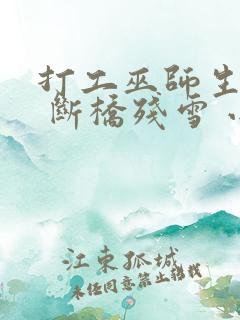 打工巫師生
斷橋殘雪
江東孤城
未任同意禁止轉載